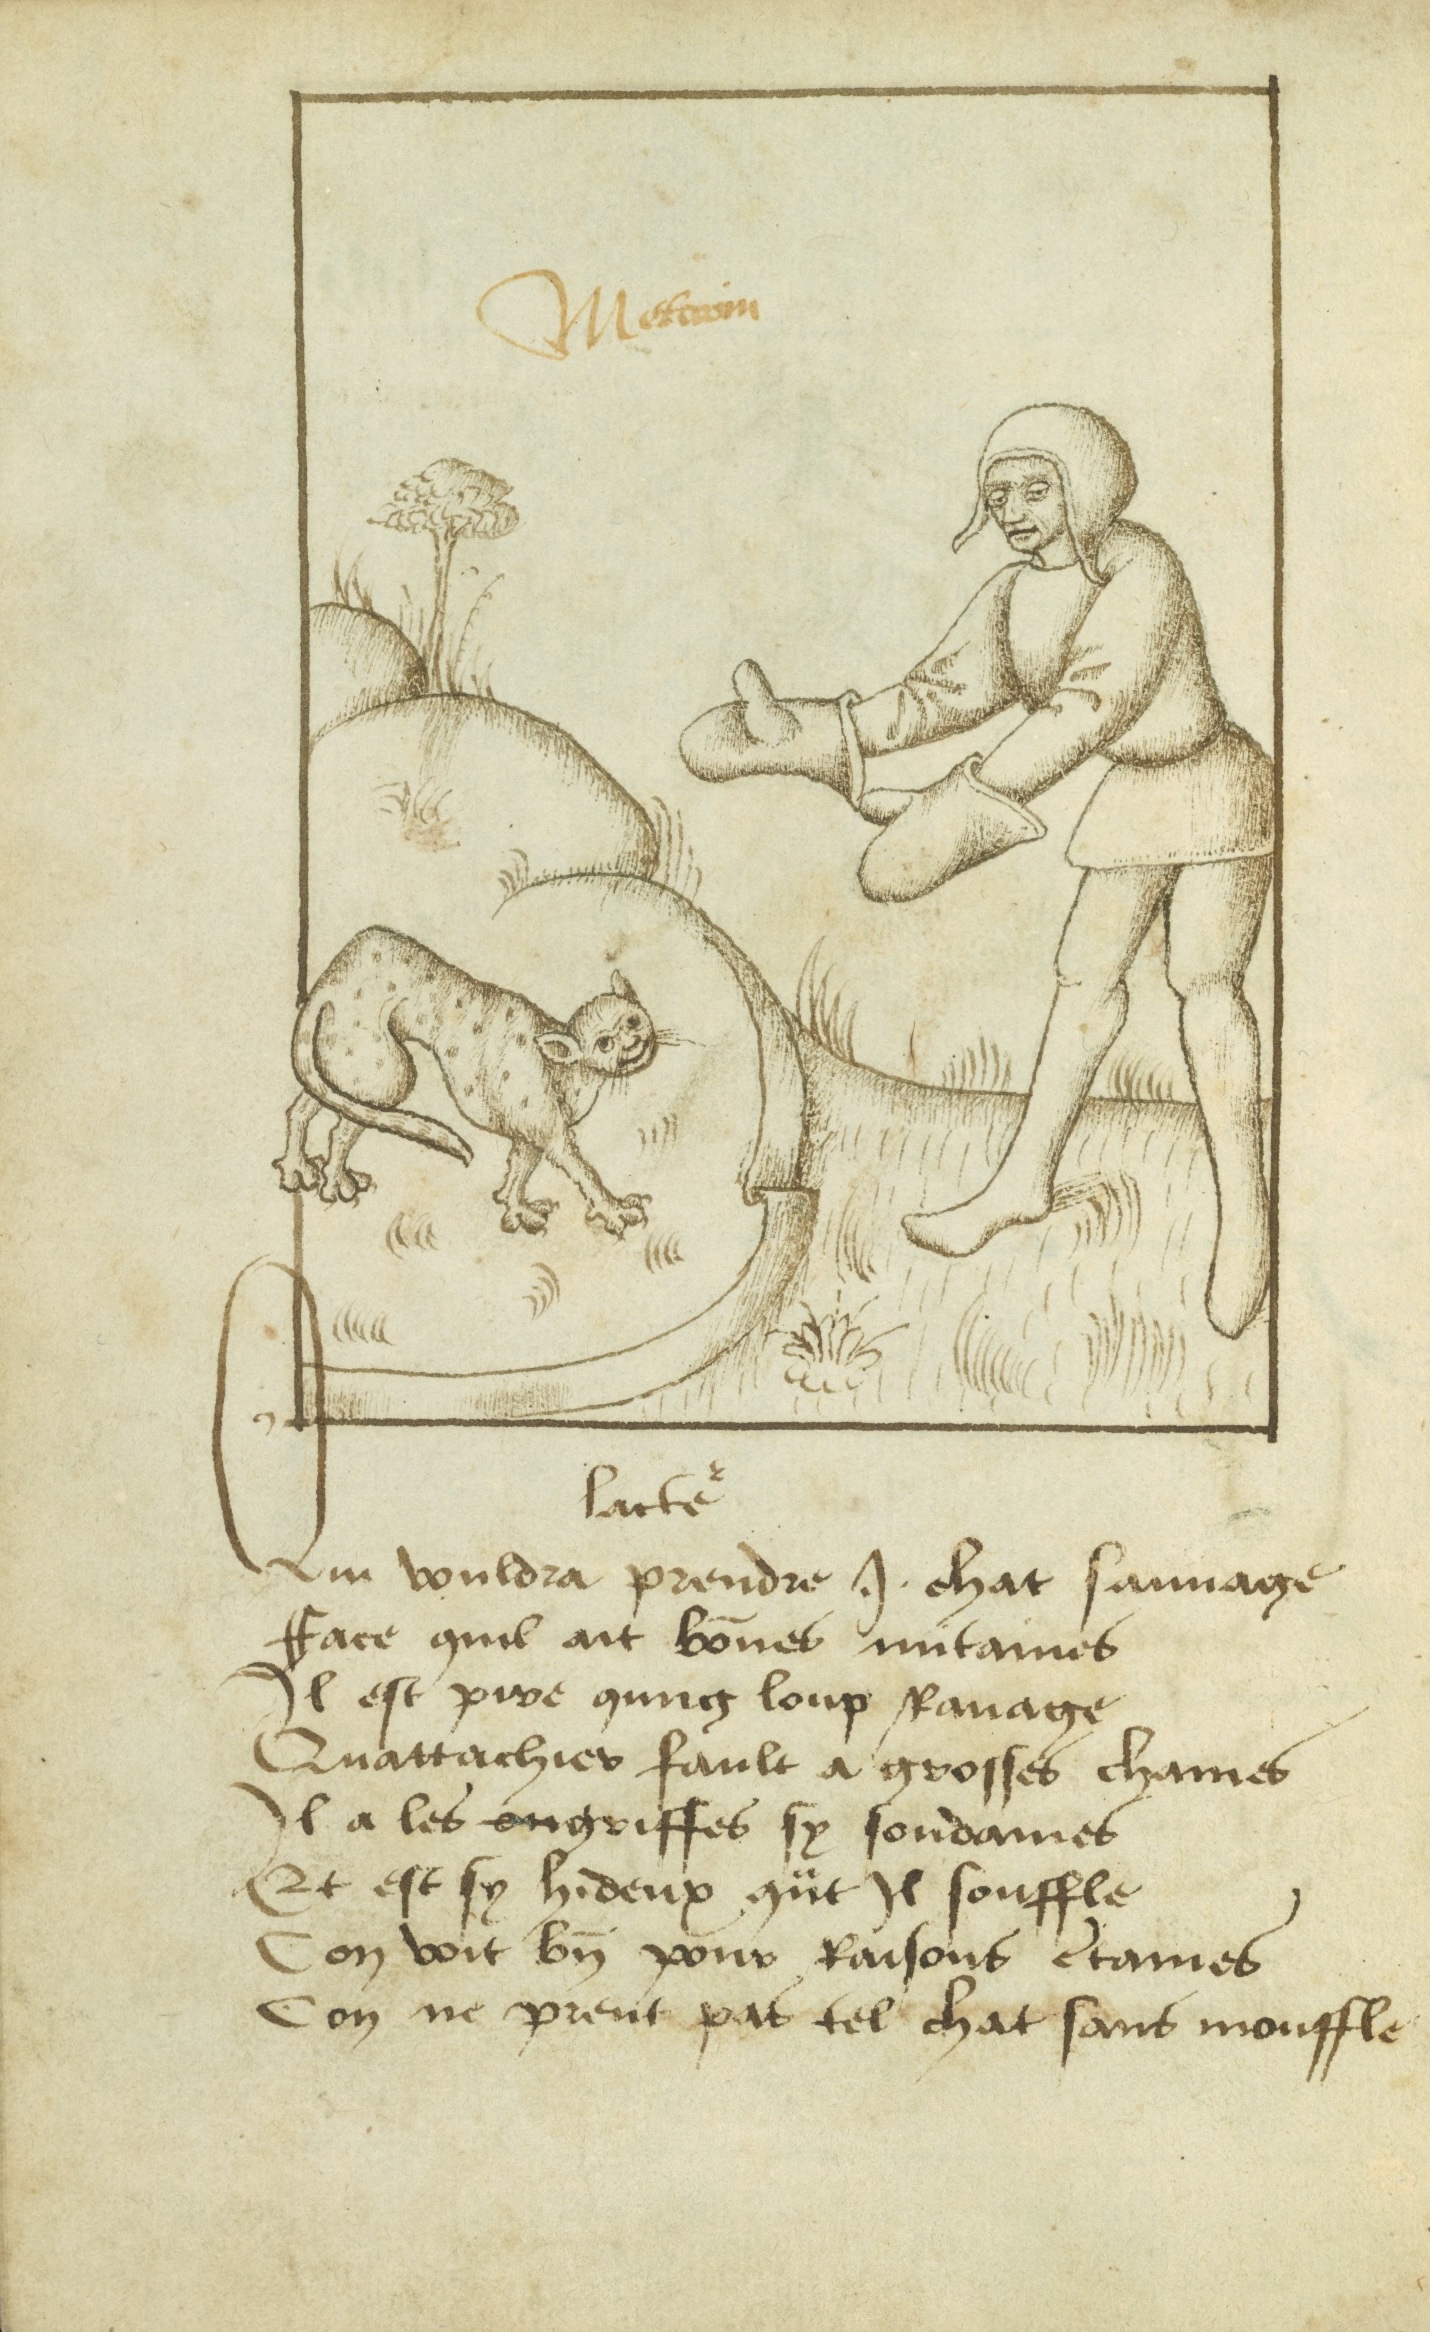 lacteʳ
Qui vouldra prendre .I. chat sauuage
Face quil ait bōnes mitaines
Il est pire qung loup Rauage
Quattachier fault a grosses chaines
Il a les griffes sy soudaines
Et est sy hideux qūt Il souffle
Con voit bn̄ pour Raisons c̄taines
Con ne prent pas tel chat sans mouffle